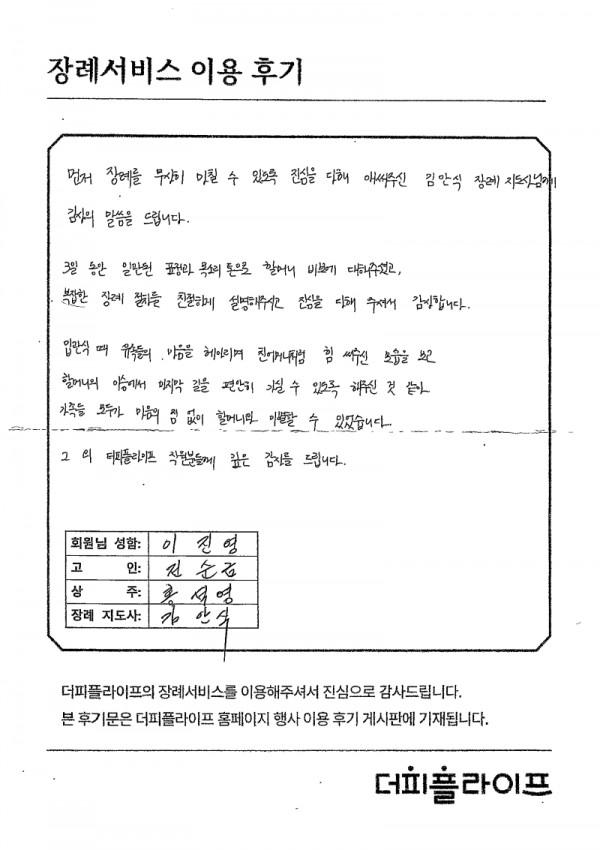 장례서비스 이용 후기
먼저 장례를 무사히 마칠 수 있도록 진심을 다해 애써주신 김안식 장례지도사님께
감사의 말씀을 드립니다.
3일 동안 일관된 표정과 목소리 톤으로 할머니 대해주셨고,
복잡한 장례 절차를 친절하게 설명해주시고 진심을 다해 주셔서 감사합니다.
입관식 때 유족들의 마음을 헤아리며 친어머니처럼 힘 써주신 모습을 보고
할머니의 이승에서 마지막 길을 편안히 가실 수 있도록 해주신 것 같아
가족들 모두가 마음의 짐 없이 할머니와 이별할 수 있었습니다.
그 외 더피플라이프 직원분들께 깊은 감사를 드립니다.
회원님 성함: 이진영
고 인: 진순
상 주: 홍석영
장례 지도사: 김안식
더피플라이프의 장례서비스를 이용해주셔서 진심으로 감사드립니다.
본 후기문은 더피플라이프 홈페이지 행사 이용 후기 게시판에 기재됩니다.
더피플라이프